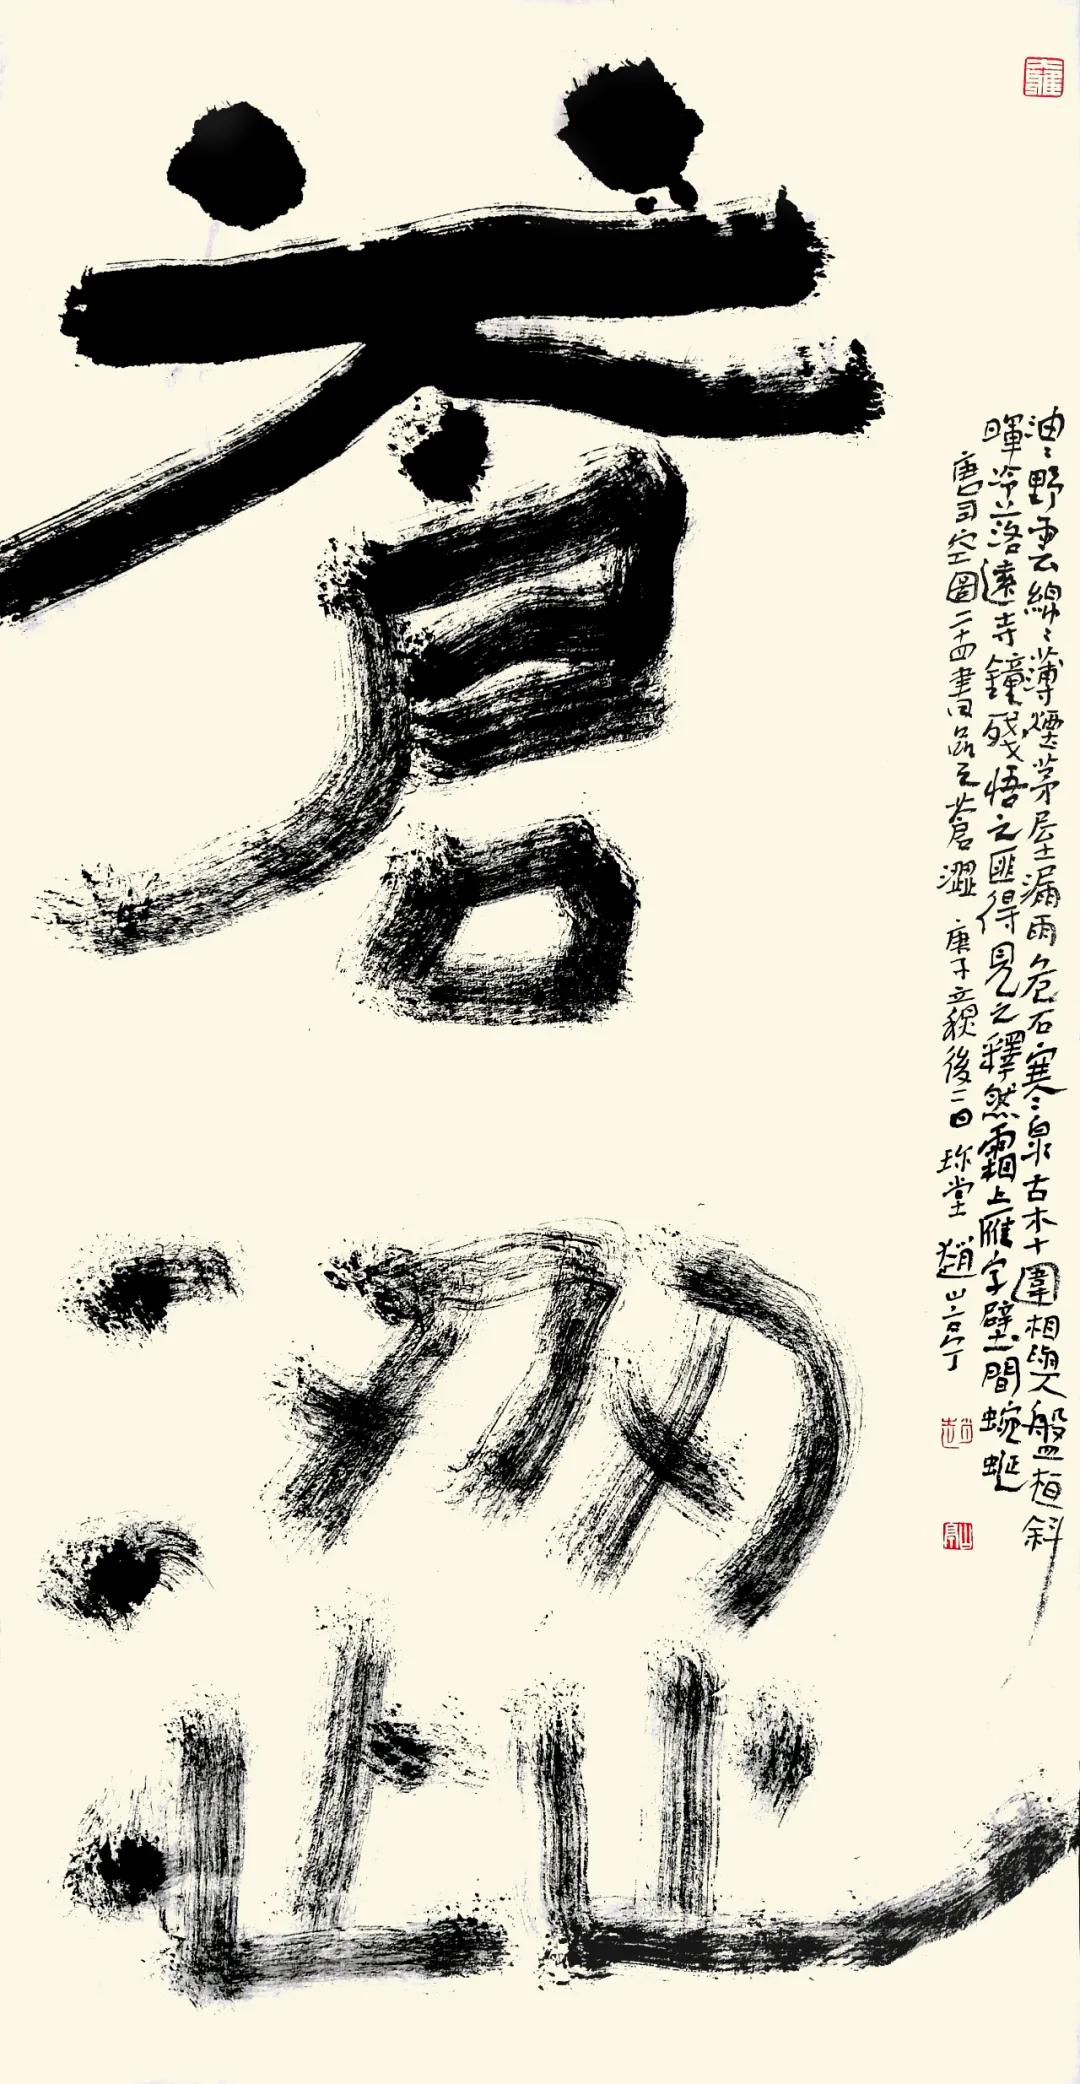 蒼澀
油〻野雲綿〻薄煙茅屋漏雨危石寒泉古木十圍相與盤桓斜
暉冷落遠寺鐘殘悟之匪得見之釋然霜上雁字壁間蜿蜒
唐司空圖二十四書品之蒼澀 庚子立秋後二日 珎堂 趙山亭